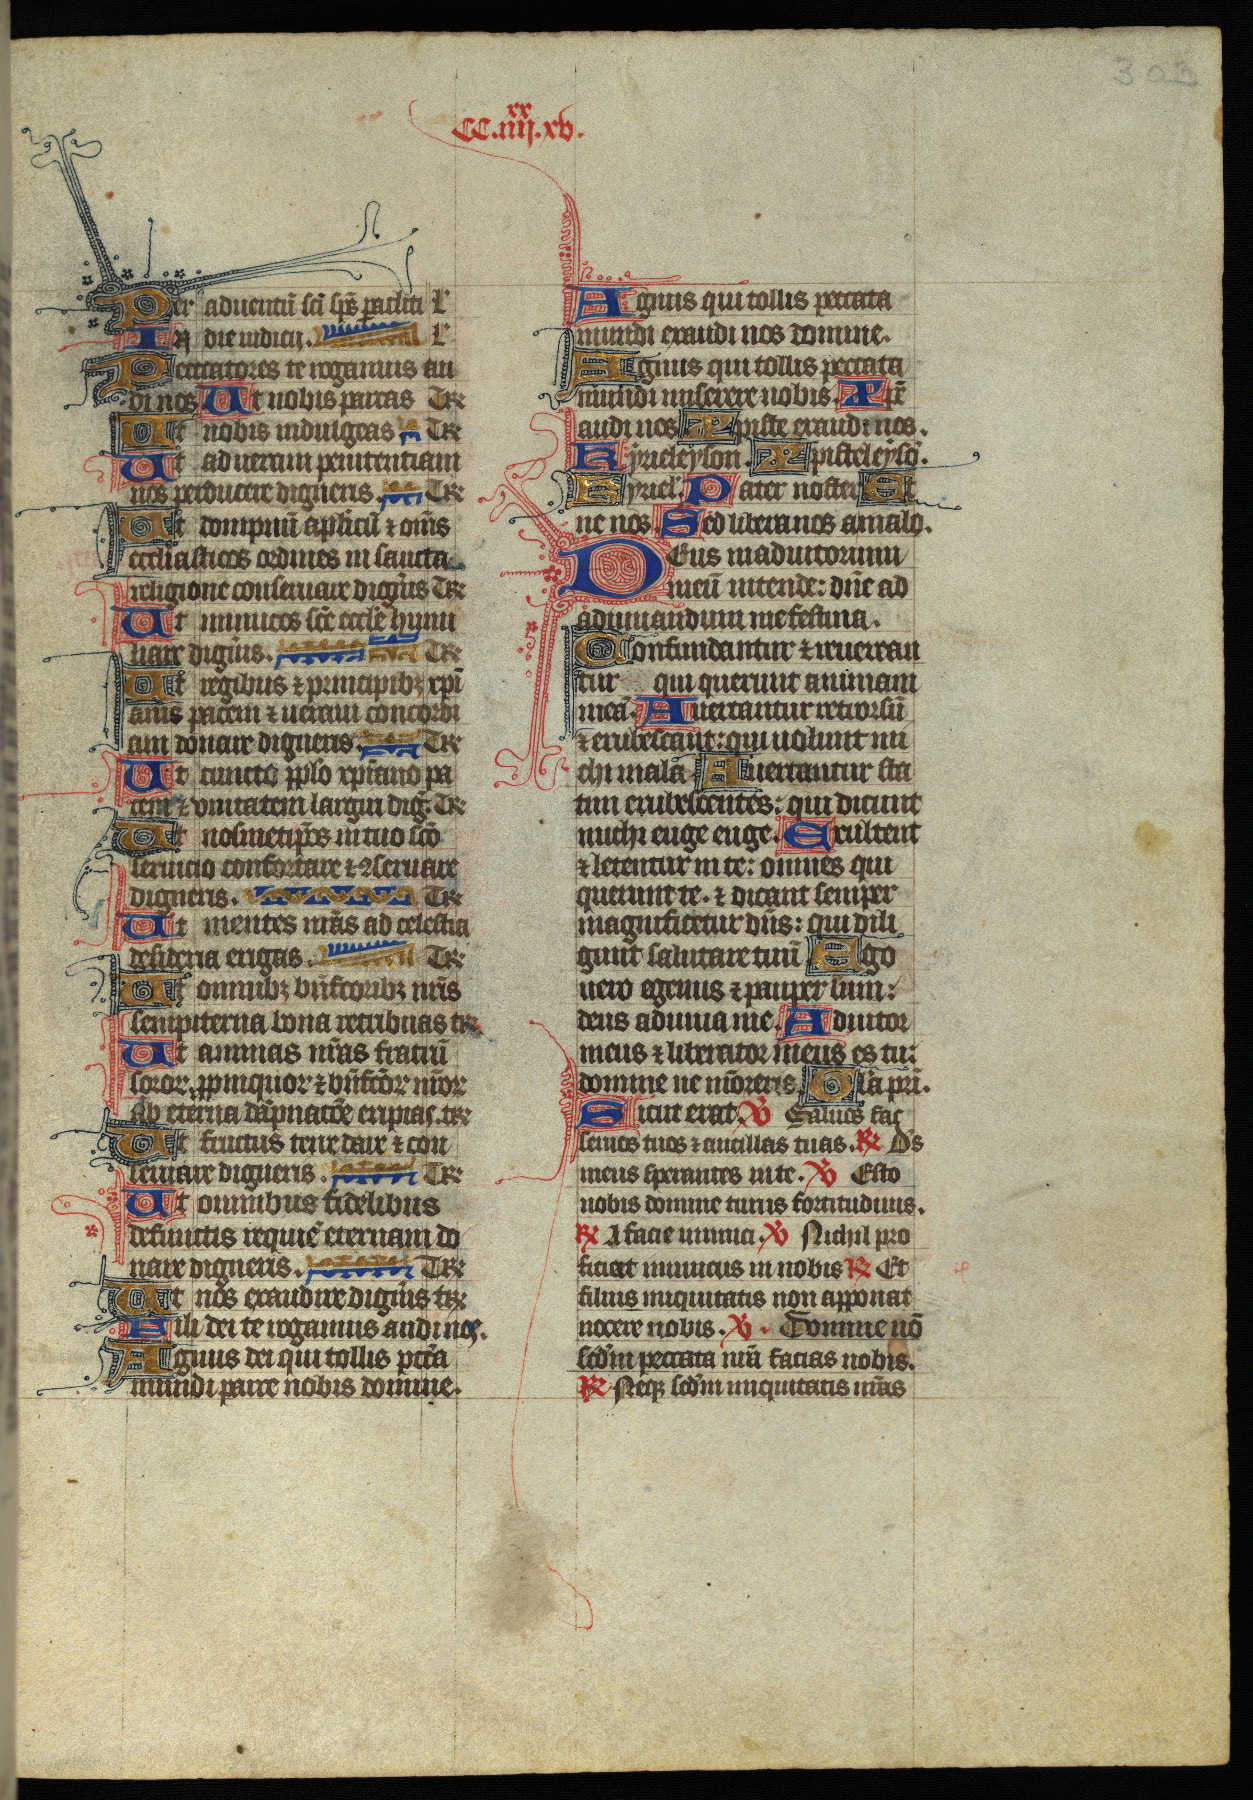 303
xx
CC.iiij.xv.
Per aduentū sc̄i sp̄s paͣcliti L'
In die iudicij. L'
Peccatores te rogamus au
di nos Ut nobis parcas TR
Ut nobis indulgeas TR
Ut ad ueram penitentiam
nos perducere digneris. TR
Ut dompnū ap̄licū & om̄s
eccl̄iasticos ordines in sancta
religione conseruare dign̄is TR
Ut inimicos sc̄e eccl̄e humi
liare dign̄is. TR
Ut regibus & principibꝫ xp̄i
anis pacem & ueram concordi
am donare digneris. TR
Ut cuncto pp̄lo xp̄iano pa
cem & vnitatem largiri diḡ. TR
Ut nosmetip̄os in tuo sc̄o
seruicio confortare & ꝯseruare
digneris. TR
Ut mentes nr̄as ad celestia
desideria erigas. TR
Ut omnibꝫ bn̄fcoribꝫ nr̄is
sempiterna bona retribuas tr
Ut animas nr̄as fratrū
soror. ꝓpinquor & bn̄fc̄or nr̄or
Ab eterna da̅pnatōe eripias. tr
Ut fructus terre dare & con
seruare digneris. TR
Ut omnibus fidelibus
defunctis requiē eternam do
nare digneris. TR
Ut nos exaudire dign̄is tr
Fili dei te rogamus audi nos.
Agnus dei qui tollis pc̄cā
mundi parce nobis domine.
Agnus qui tollis peccata
mundi exaudi nos domine.
Agnus qui tollis peccata
mundi miserere nobis. Xp̄e
audi nos Xpiste exaudi nos.
Kyrieleyson. Xpisteleysō.
Kyriel'. Pater noster Et
ne nos. Sed libera nos a malo.
Deus in adiutorium
meū intende: dn̄e ad
adiuuandum me festina.
Confundantur & reuerean
tur qui querunt animam
meā. Auertantur retrorsū
& erubescant: qui uolunt mi
chi mala Auertantur sta
tim erubescentes: qui dicunt
michi euge euge. Exultent
& letentur in te: omnes qui
querunt te. & dicant semper
magnificetur dn̄s: qui dili
gunt salutare tuū Ego
uero egenus & pauper sum:
deus adiuua me. Adiutor
meus & liberator meus es tu:
domine ne moreris. Gl̄a pr̄i.
Sicut erat. V Saluos fac
seruos tuos & ancillas tuas. R Ds̄
meus sperantes in te. V Esto
nobis domine turris fortitudinis.
R A facie inimici. V Nichil pro
ficiat inimicus in nobis R Et
filius iniquitatis non apponat
nocere nobis. V. Domine nō
scd̄m peccata nr̄a facias nobis.
R Neqꝫ scd̄m iniquitatis nr̄as